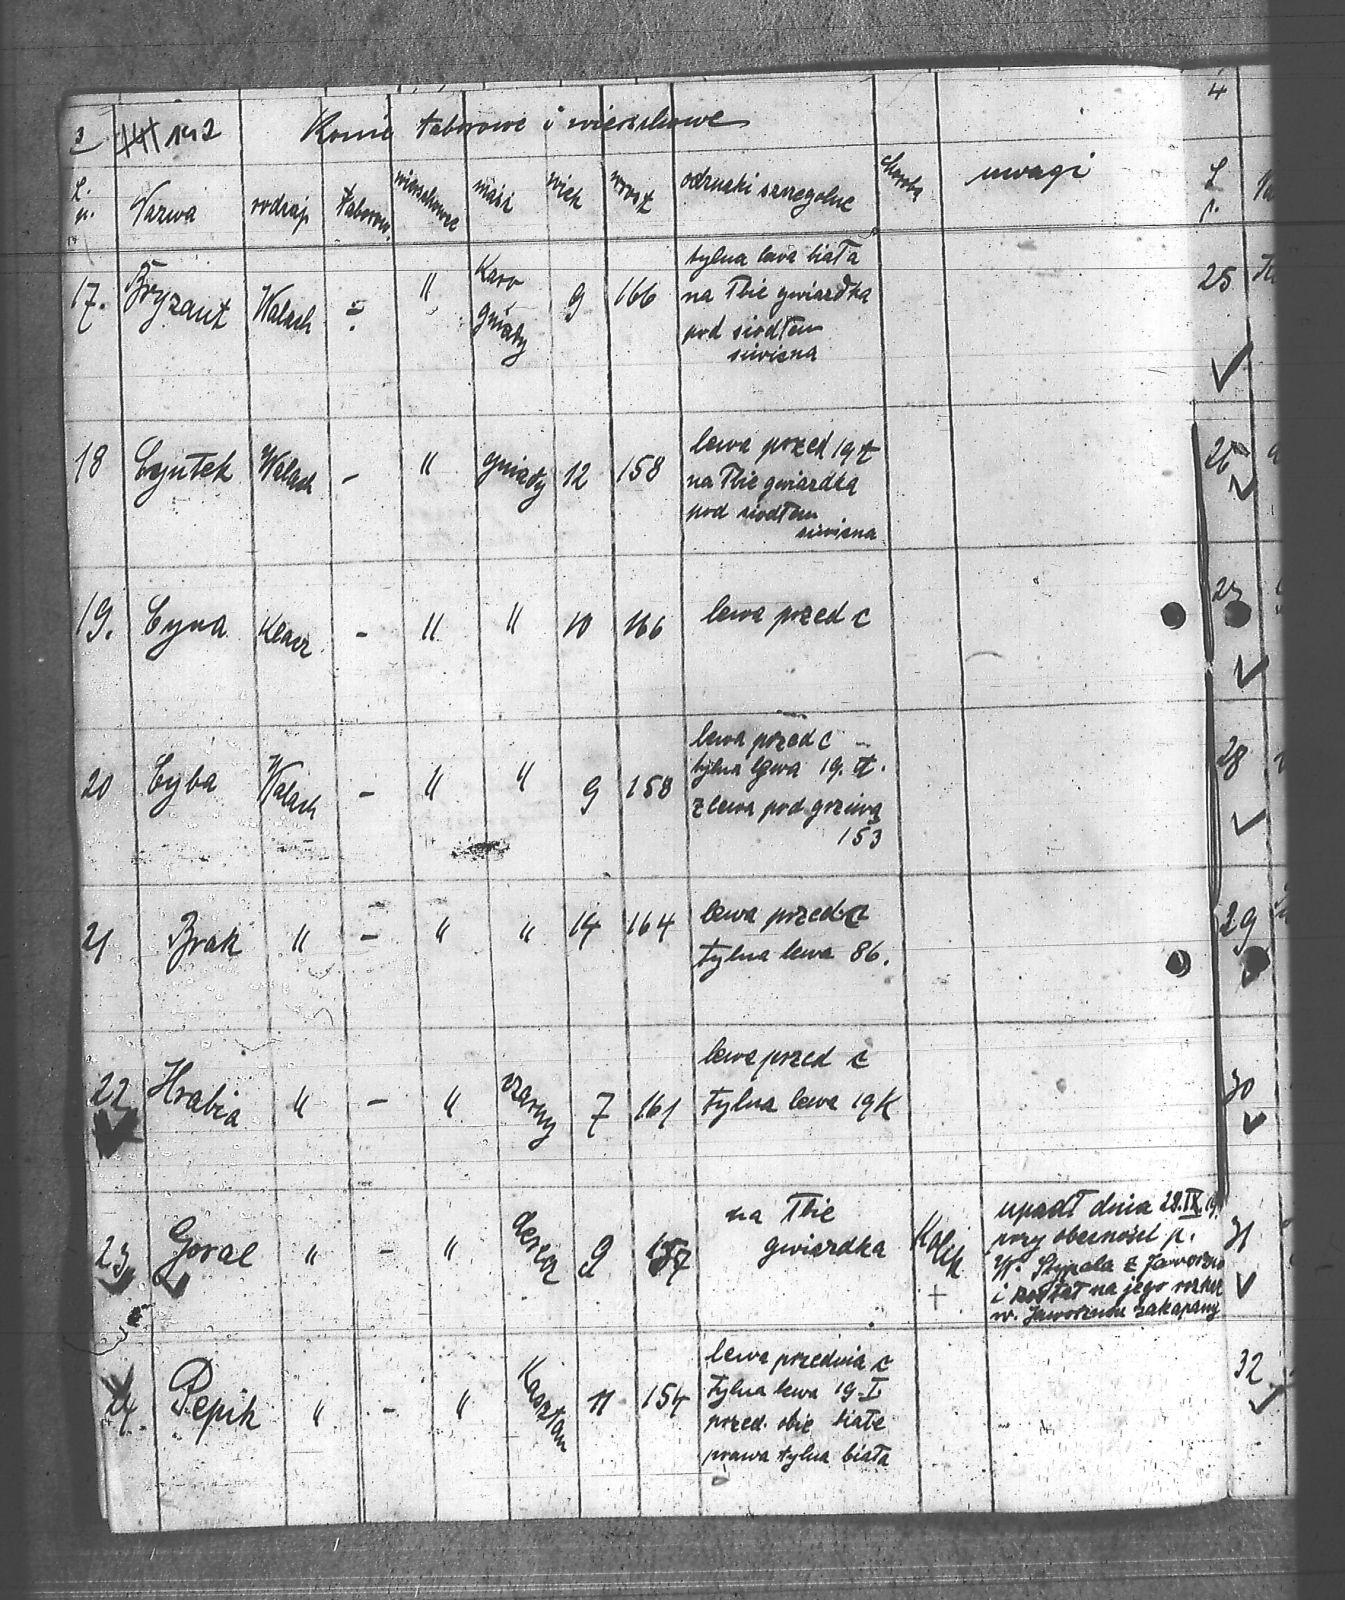 3 142 Konie taborowe i wierzchowe 4
L. n. Nazwa rodzaj taborow. wierzchowe maść wiek wzrost odznaki szczególne choroba uwagi L. p.
17. Bryzant Wałach - " Karo gniady 9 166 tylna lewa biała
na łbie gwiazdka
pod siodłem
siwizna
25
18 Cyntek Wałach - " gniady 12 158 lewa przed 19 t
na łbie gwiazdka
pod siodłem
siwizna
26
19. Cyna Klacz - " " 10 166 lewa przed c
27
20 Cyba Wałach - " " 9 158 lewa przed c
tylna lewa 19. t.
z lewa pod grziwą
153
28
21 Brak " - " " 14 164 lewa przed c
tylna lewa 86.
29
22 Hrabia " - " czarny 7 161 lewa przed c
tylna lewa 19 K
30
23 Goral " - " 9 157 na łbie
gwiazdka
Kolik +
upadł dnia 28.IX.19.
przy obecności p.
W. Stypała z Jaworzno
i został na jego rozkaz
w. Jaworznie zakapany
31
24. Pepik " - " Kasztan 11 154 lewa przednia c
tylna lewa 19 I
przed. obie białe
prawa tylna biała
32